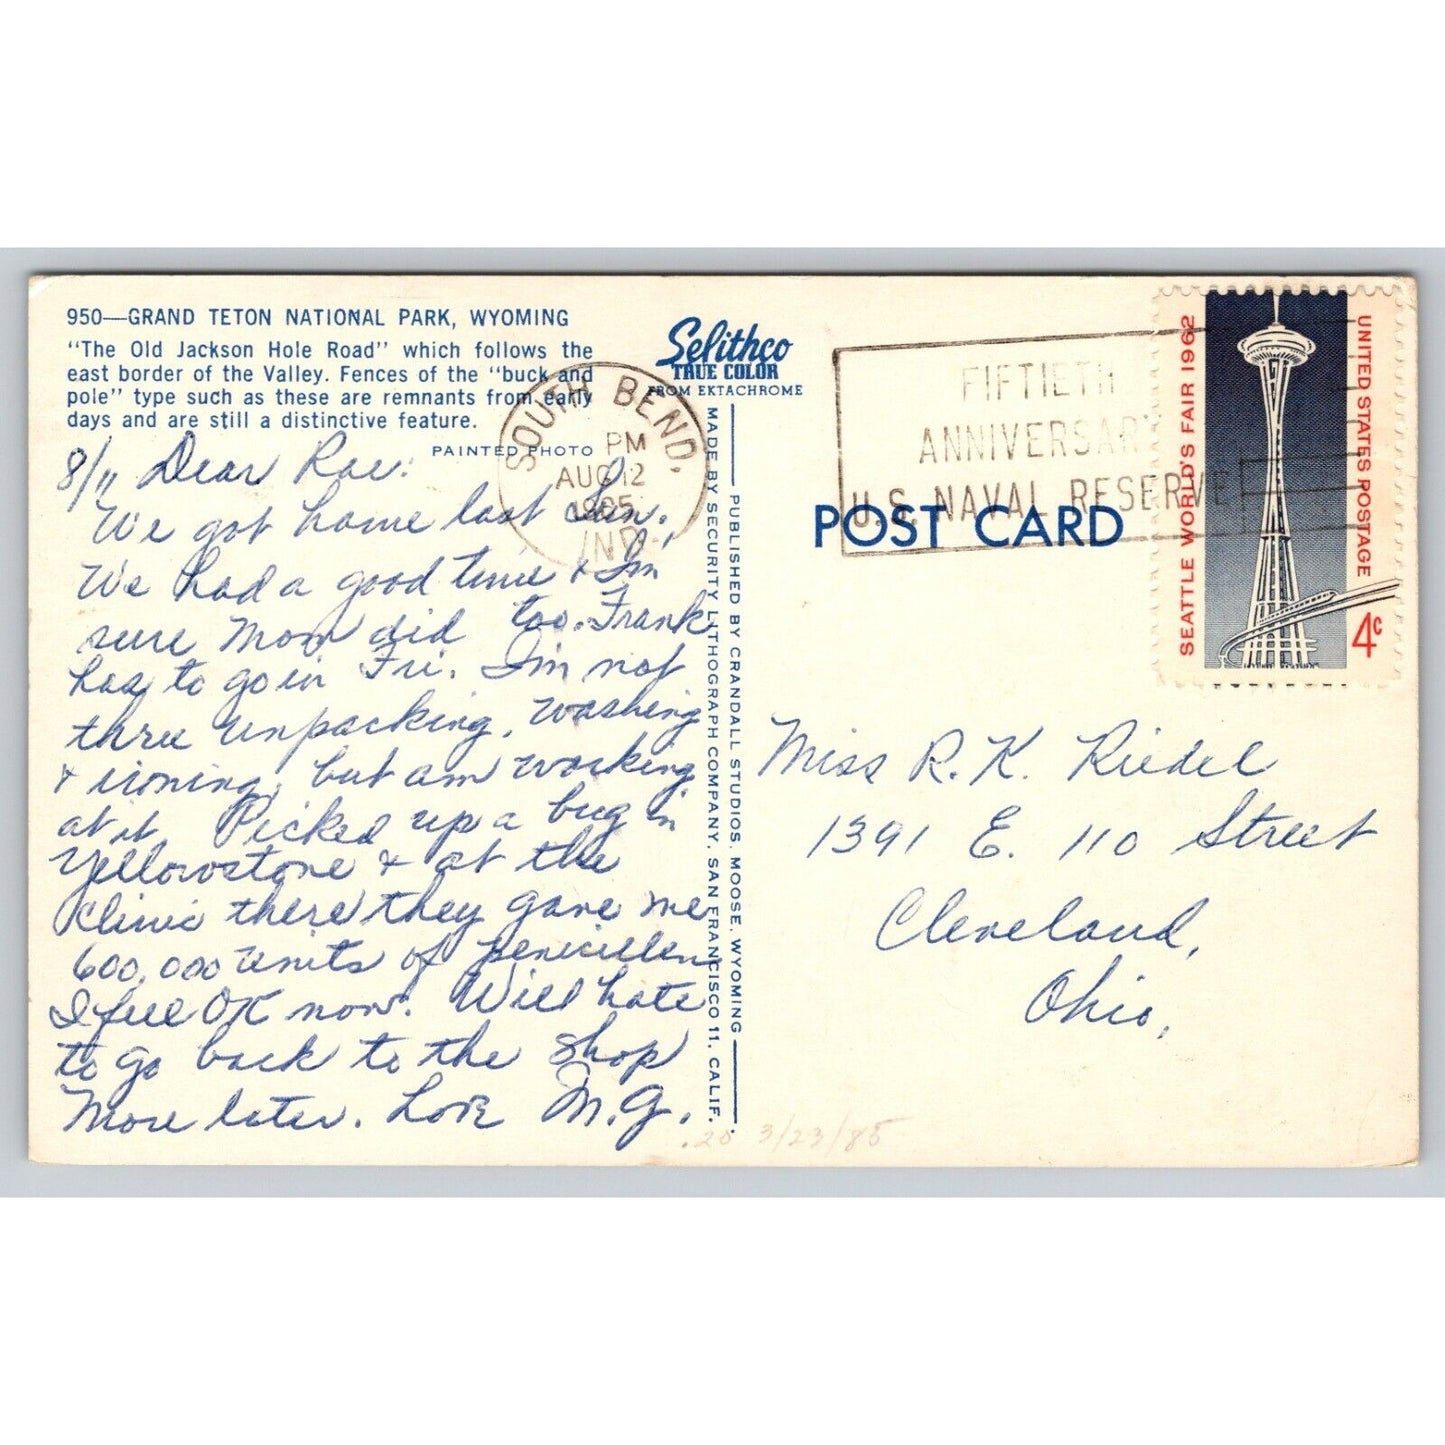 950—GRAND TETON NATIONAL PARK, WYOMING
"The Old Jackson Hole Road" which follows the
east border of the Valley. Fences of the "buck and
pole" type such as these are remnants from early
days and are still a distinctive feature.
PAINTED PHOTO
8/11 Dear Rae:
We got home last Sun.
We had a good time & I'm
sure Mom did too. Frank
has to go in Fri. I'm not
thru unpacking, washing
& ironing, but am working
at it. Picked up a bug in
Yellowstone & at the
Clinic there they gave me
600,000 units of penicillen
I feel OK now. Will hate
to go back to the shop
More later. Love M.G.
Selithco
TRUE COLOR
FROM EKTACHROME
SOUTH BEND,
PM
AUG 12
1965
IND.
MADE BY SECURITY LITHOGRAPH COMPANY, SAN FRANCISCO 11, CALIF.
PUBLISHED BY CRANDALL STUDIOS, MOOSE, WYOMING
FIFTIETH
ANNIVERSARY
U.S. NAVAL RESERVE
POST CARD
SEATTLE WORLD'S FAIR 1962
UNITED STATES POSTAGE
4c
Miss R. K. Riedel
1391 E. 110 Street
Cleveland,
Ohio,
.20 3/23/85